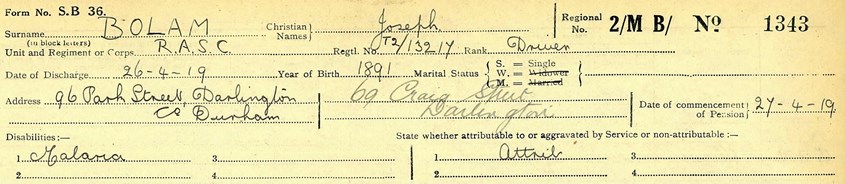 Form No. S.B 36.
Surname BOLAM Christian Names Joseph Regional No. 2/M B/ No 1343
(in block letters)
Unit and Regiment or Corps R.A.S.C Regtl. No. T2/13217 Rank Driver
Date of Discharge 26-4-19 Year of Birth 1891 Marital Status S. = Single
W. = Widower
M. = Married
Address 96 Park Street, Darlington 69 Craig Street Date of commencement of Pension 27-4-19.
Co Durham Darlington
Disabilities:— State whether attributable to or aggravated by Service or non-attributable :—
1 Malaria 3 1 Attrib 3
2 4 2 4